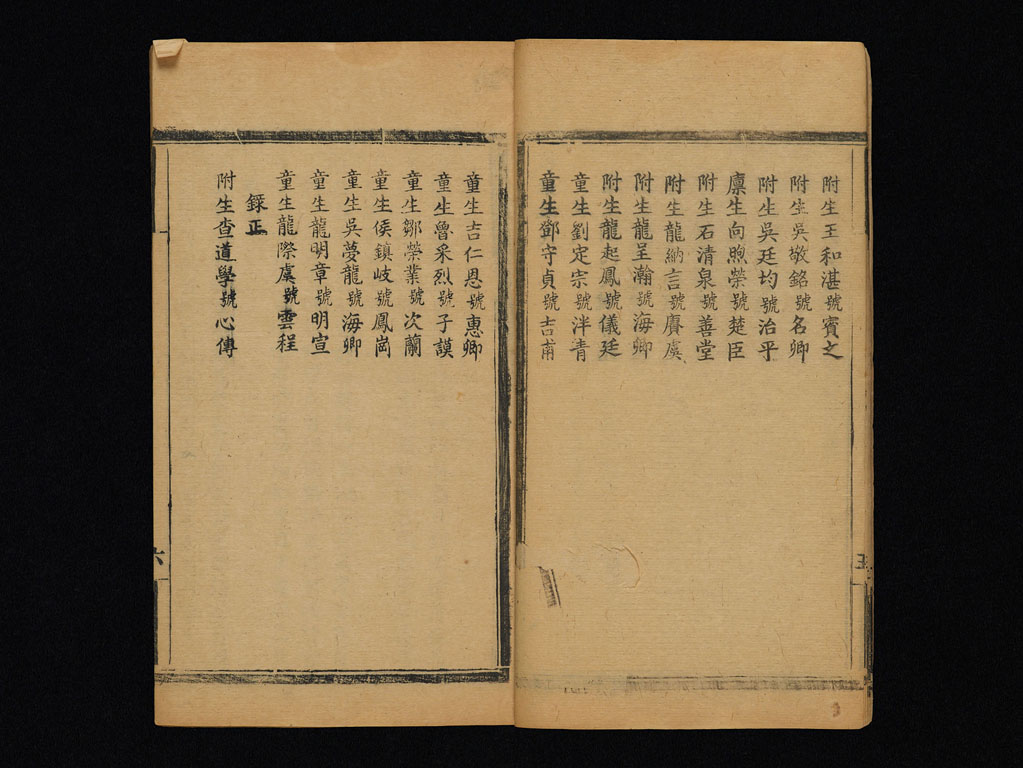 附生王和湛號賓之
附生吳敬銘號名卿
附生吳廷均號治平
廪生向煦榮號楚臣
附生石清泉號善堂
附生龍納言號賡虞
附生龍呈瀚號海卿
附生龍起鳳號儀廷
童生劉定宗號泮青
童生鄧守貞號吉甫
五
童生吉仁恩號惠卿
童生魯采烈號子謨
童生鄒榮業號次蘭
童生侯鎮岐號鳳崗
童生吳夢龍號海卿
童生龍明章號明宣
童生龍際虞號雲程
錄正
附生查道學號心傳
六